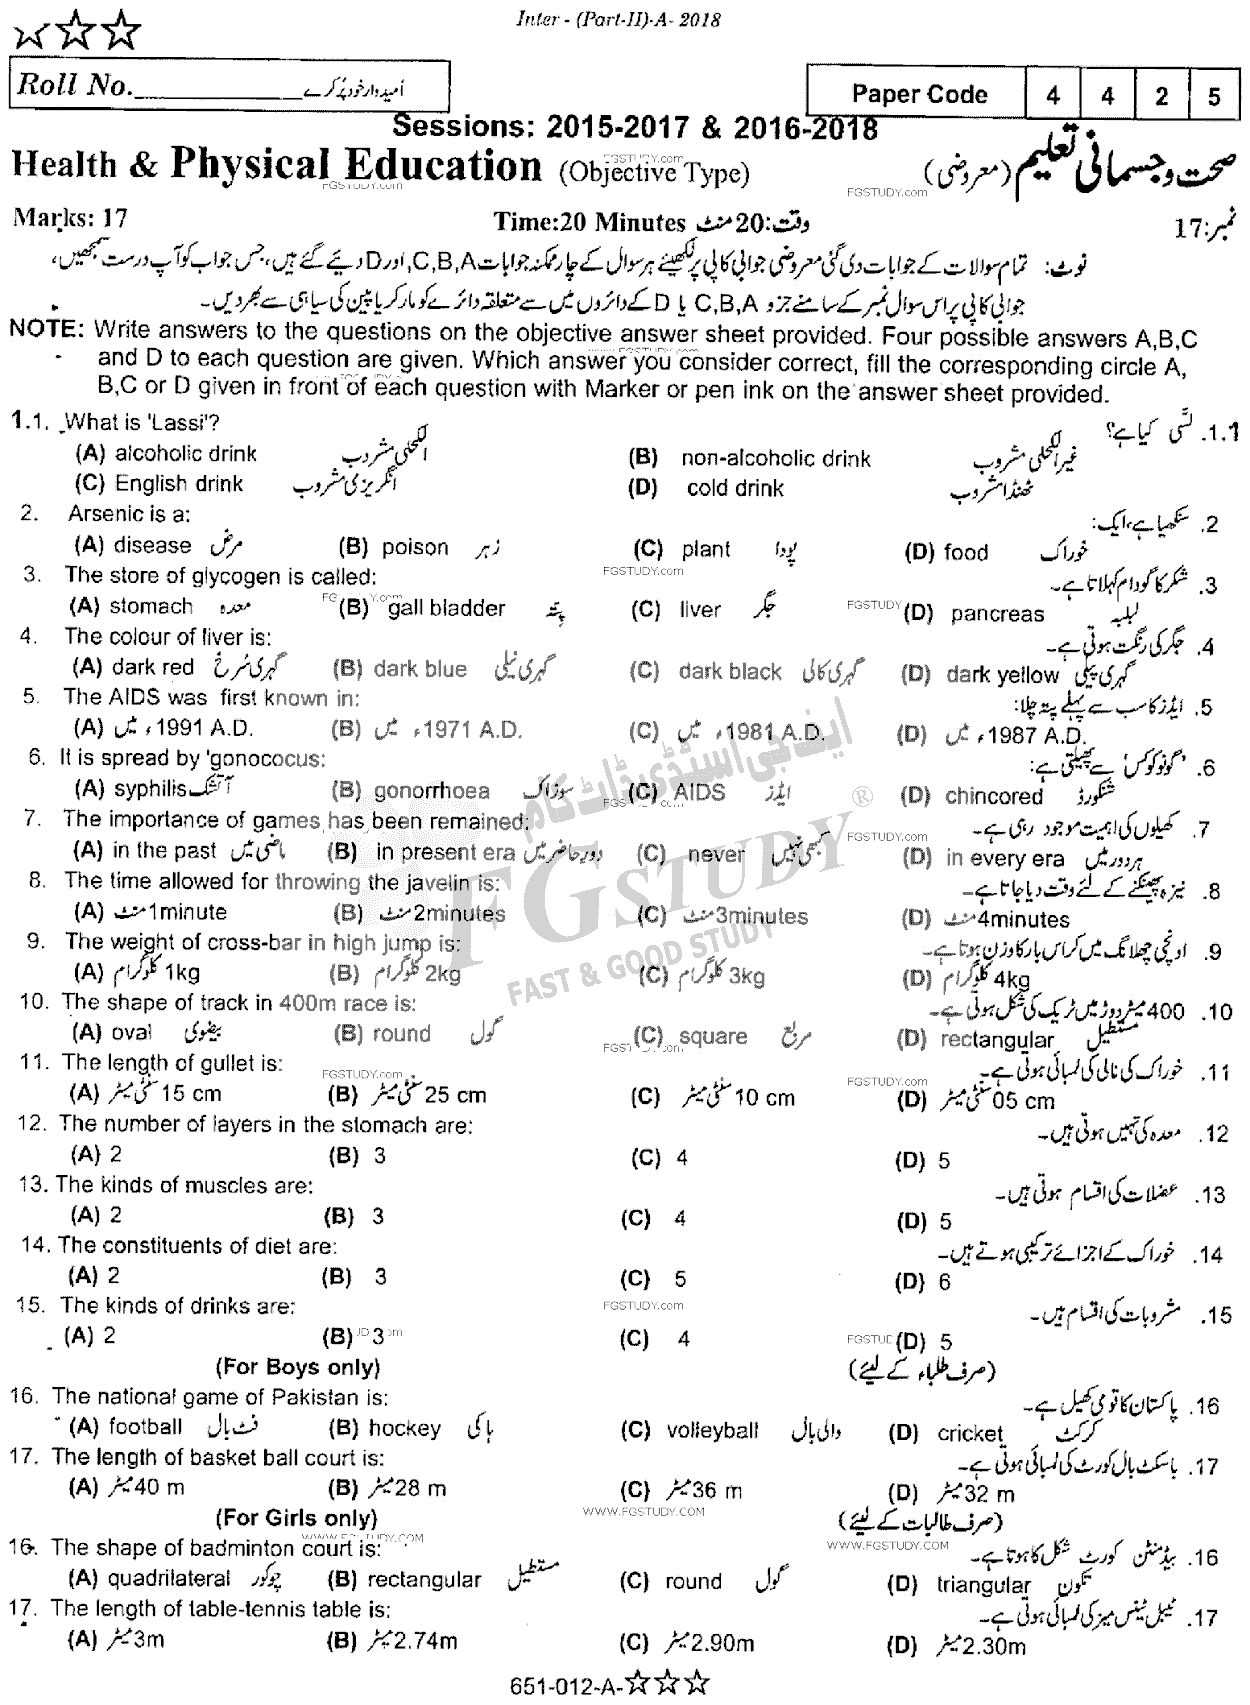 Inter - (Part-II)-A- 2018
Roll No.____________ اُمیدوار خود پُر کرے
Paper Code 4 4 2 5
Sessions: 2015-2017 & 2016-2018
Health & Physical Education (Objective Type) صحت و جسمانی تعلیم (معروضی)
FGSTUDY.com FGSTUDY.com FGSTUDY.com
Marks: 17 Time:20 Minutes وقت:20 منٹ نمبر:17
نوٹ: تمام سوالات کے جوابات دی گئی معروضی جوابی کاپی پر لکھیئے ہر سوال کے چار ممکنہ جوابات C,B,A اور D دیئے گئے ہیں، جس جواب کو آپ درست سمجھیں،
جوابی کاپی پر اس سوال نمبر کے سامنے جزو C,B,A یا D کے دائروں میں سے متعلقہ دائرے کو مارکر یا پین کی سیاہی سے بھر دیں۔
NOTE: Write answers to the questions on the objective answer sheet provided. Four possible answers A,B,C
and D to each question are given. Which answer you consider correct, fill the corresponding circle A,
B,C or D given in front of each question with Marker or pen ink on the answer sheet provided.
1.1. What is 'Lassi'? 1.1. لسّی کیا ہے؟
(A) alcoholic drink الکحلی مشروب (B) non-alcoholic drink غیر الکحلی مشروب
(C) English drink انگریزی مشروب (D) cold drink ٹھنڈا مشروب
2. Arsenic is a: 2. سنکھیا ہے، ایک:
(A) disease مرض (B) poison زہر (C) plant پودا (D) food خوراک
3. The store of glycogen is called: FGSTUDY.com 3. شکر کا گودام کہلاتا ہے۔
(A) stomach معدہ (B) gall bladder پِتہ (C) liver جگر (D) pancreas لبلبہ
4. The colour of liver is: 4. جگر کی رنگت ہوتی ہے۔
(A) dark red گہری سُرخ (B) dark blue گہری نیلی (C) dark black گہری کالی (D) dark yellow گہری پیلی
5. The AIDS was first known in: 5. ایڈز کا سب سے پہلے پتہ چلا:
(A) میں ،1991 A.D. (B) میں ،1971 A.D. (C) میں ،1981 A.D. (D) میں ،1987 A.D.
6. It is spread by 'gonococus: 6. 'گونوکوکس' سے پھیلتی ہے:
(A) syphilis آتشک (B) gonorrhoea سوزاک (C) AIDS ایڈز (D) chincored شنکورڈ
7. The importance of games has been remained: FGSTUDY.com 7. کھیلوں کی اہمیت موجود رہی ہے۔
(A) in the past ماضی میں (B) in present era دورِ حاضر میں (C) never کبھی نہیں (D) in every era ہر دور میں
8. The time allowed for throwing the javelin is: 8. نیزہ پھینکنے کے لئے وقت دیا جاتا ہے۔
(A) منٹ 1minute (B) منٹ 2minutes (C) منٹ 3minutes (D) منٹ 4minutes
9. The weight of cross-bar in high jump is: 9. اونچی چھلانگ میں کراس بار کا وزن ہوتا ہے۔
(A) کلوگرام 1kg (B) کلوگرام 2kg (C) کلوگرام 3kg (D) کلوگرام 4kg
ایف جی اسٹڈی ڈاٹ کام
FGSTUDY ®
FAST & GOOD STUDY
10. The shape of track in 400m race is: 10. 400 میٹر دوڑ میں ٹریک کی شکل ہوتی ہے۔
(A) oval بیضوی (B) round گول (C) square مربع (D) rectangular مستطیل
11. The length of gullet is: FGSTUDY.com FGSTUDY.com 11. خوراک کی نالی کی لمبائی ہوتی ہے۔
(A) سنٹی میٹر 15 cm (B) سنٹی میٹر 25 cm (C) سنٹی میٹر 10 cm (D) سنٹی میٹر 05 cm
12. The number of layers in the stomach are: 12. معدہ کی تہیں ہوتی ہیں۔
(A) 2 (B) 3 (C) 4 (D) 5
13. The kinds of muscles are: 13. عضلات کی اقسام ہوتی ہیں۔
(A) 2 (B) 3 (C) 4 (D) 5
14. The constituents of diet are: 14. خوراک کے اجزائے ترکیبی ہوتے ہیں۔
(A) 2 (B) 3 (C) 5 (D) 6
15. The kinds of drinks are: FGSTUDY.com 15. مشروبات کی اقسام ہیں۔
(A) 2 (B) 3 (C) 4 (D) 5
(For Boys only) (صرف طلباء کے لیئے)
16. The national game of Pakistan is: 16. پاکستان کا قومی کھیل ہے۔
(A) football فٹ بال (B) hockey ہاکی (C) volleyball والی بال (D) cricket کرکٹ
17. The length of basket ball court is: 17. باسکٹ بال کورٹ کی لمبائی ہوتی ہے۔
(A) میٹر 40 m (B) میٹر 28 m (C) میٹر 36 m (D) میٹر 32 m
(For Girls only) WWW.FGSTUDY.COM (صرف طالبات کے لیئے)
WWW.FGSTUDY.COM WWW.FGSTUDY.COM
16. The shape of badminton court is: 16. بیڈمنٹن کورٹ شکل کا ہوتا ہے۔
(A) quadrilateral چوکور (B) rectangular مستطیل (C) round گول (D) triangular تکون
17. The length of table-tennis table is: 17. ٹیبل ٹینس میز کی لمبائی ہوتی ہے۔
(A) میٹر 3m (B) میٹر 2.74m (C) میٹر 2.90m (D) میٹر 2.30m
651-012-A-☆☆☆